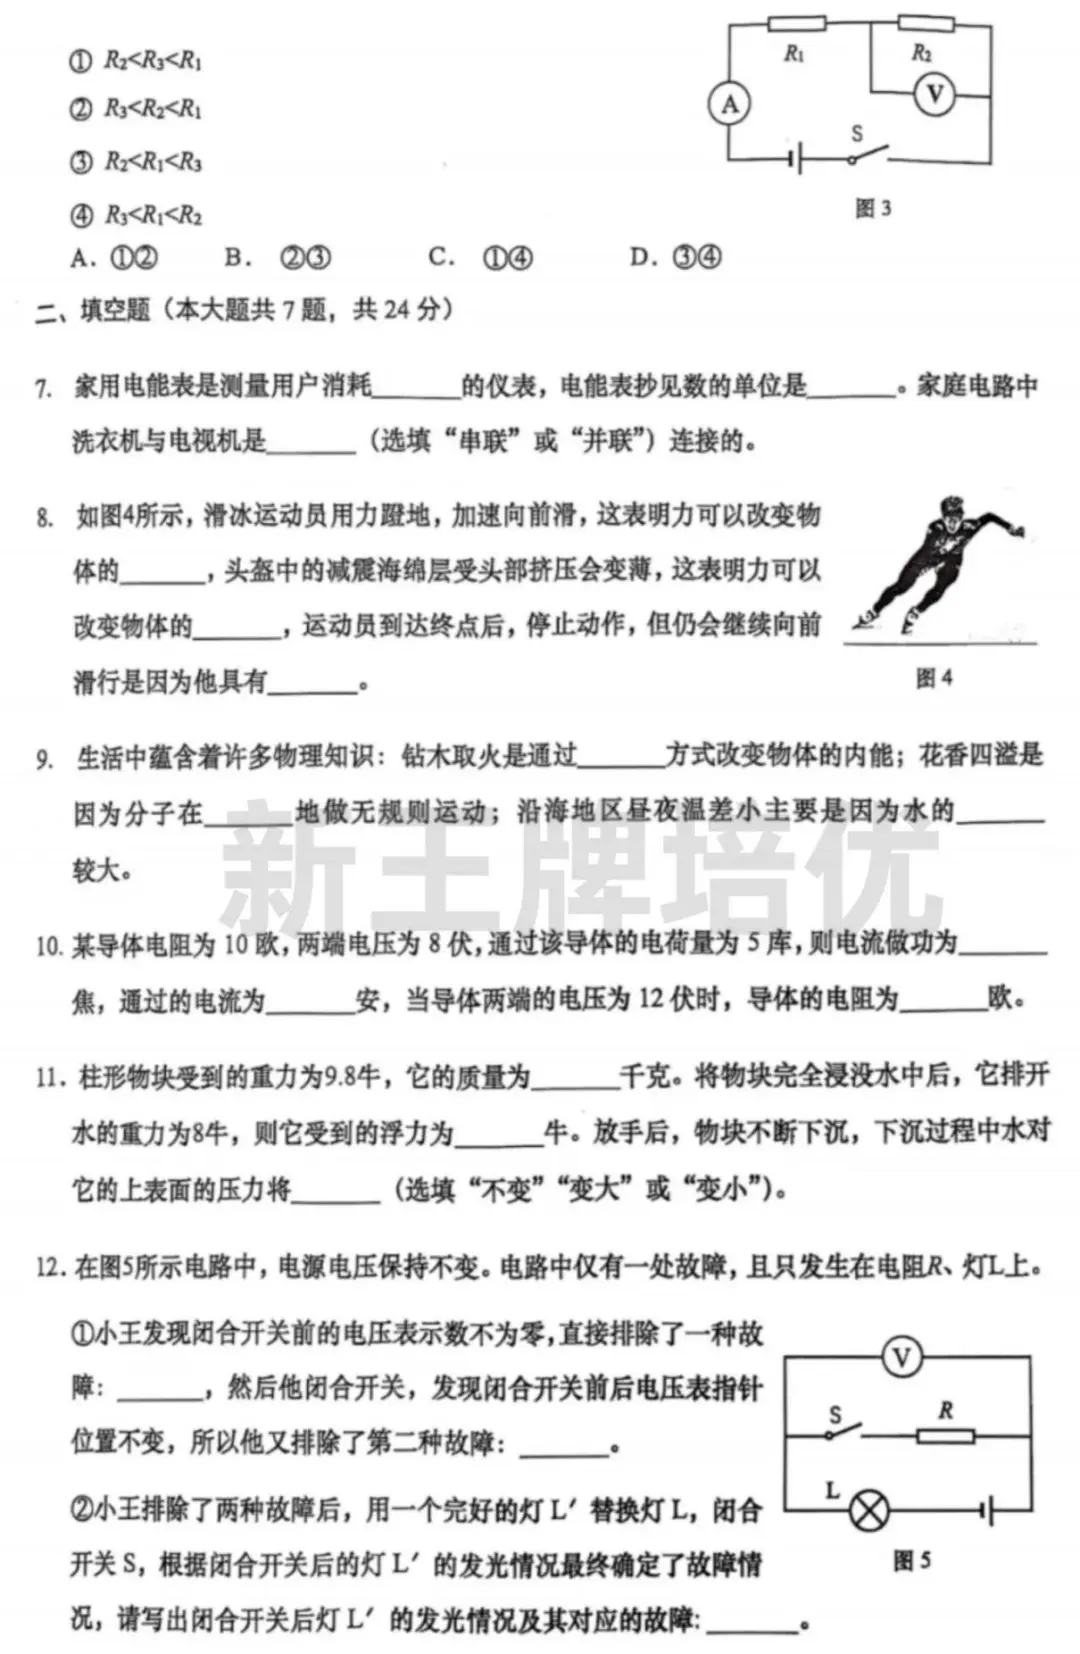 ① R₂<R₃<R₁
② R₃<R₂<R₁
③ R₂<R₁<R₃
④ R₃<R₁<R₂
A. ①② B. ②③ C. ①④ D. ③④
R₁ R₂
A V
S
图 3
二、填空题（本大题共 7 题，共 24 分）
7. 家用电能表是测量用户消耗______的仪表，电能表抄见数的单位是______。家庭电路中
洗衣机与电视机是______（选填“串联”或“并联”）连接的。
8. 如图4所示，滑冰运动员用力蹬地，加速向前滑，这表明力可以改变物
体的______，头盔中的减震海绵层受头部挤压会变薄，这表明力可以
改变物体的______，运动员到达终点后，停止动作，但仍会继续向前
滑行是因为他具有______。
图 4
9. 生活中蕴含着许多物理知识：钻木取火是通过______方式改变物体的内能；花香四溢是
因为分子在______地做无规则运动；沿海地区昼夜温差小主要是因为水的______
较大。
新王牌培优
10. 某导体电阻为 10 欧，两端电压为 8 伏，通过该导体的电荷量为 5 库，则电流做功为______
焦，通过的电流为______安，当导体两端的电压为 12 伏时，导体的电阻为______欧。
11. 柱形物块受到的重力为9.8牛，它的质量为______千克。将物块完全浸没水中后，它排开
水的重力为8牛，则它受到的浮力为______牛。放手后，物块不断下沉，下沉过程中水对
它的上表面的压力将______（选填“不变”“变大”或“变小”）。
12. 在图5所示电路中，电源电压保持不变。电路中仅有一处故障，且只发生在电阻R、灯L上。
①小王发现闭合开关前的电压表示数不为零，直接排除了一种故
障：______，然后他闭合开关，发现闭合开关前后电压表指针
位置不变，所以他又排除了第二种故障：______。
②小王排除了两种故障后，用一个完好的灯 L′ 替换灯 L，闭合
开关 S，根据闭合开关后的灯 L′ 的发光情况最终确定了故障情
况，请写出闭合开关后灯 L′ 的发光情况及其对应的故障：______。
V
S R
L
图 5